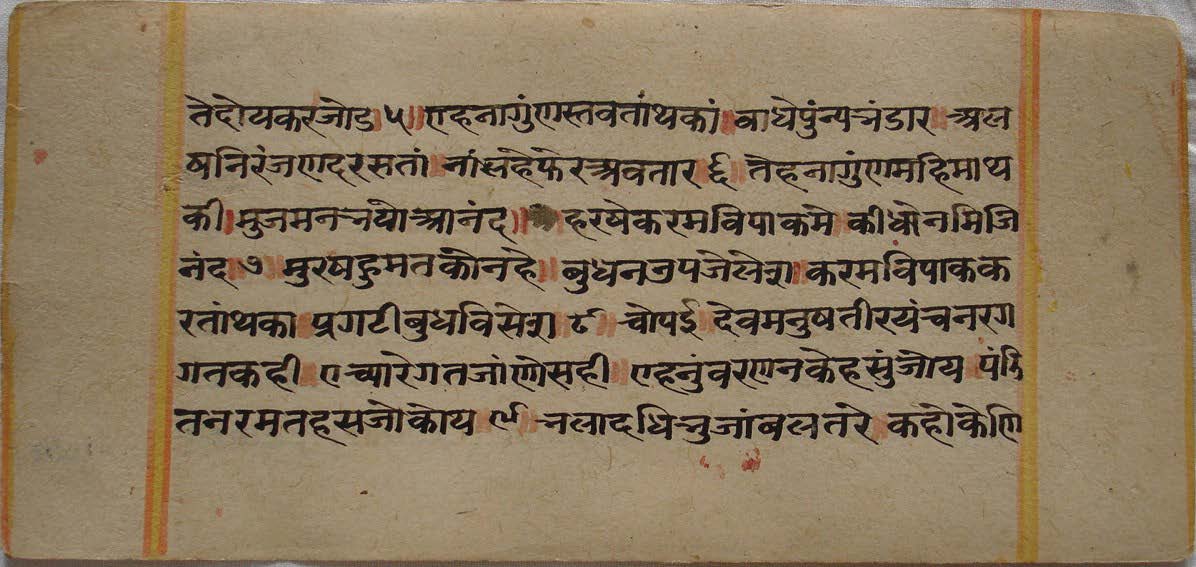 तेदोयकरजोड ५॥ एहनागुंणस्तवतांथकां॥ वाधेपुंन्यभंडार॥ अल
षनिरंजणदरसतां॥ नांलहेफेरअवतार॥ ६॥ तेहनागुंणमहिमाथ
की॥ मुजमनभयोआनंद॥ हरषेकरमविपाकमे॥ कीधोनमिजि
नंद ७॥ मुरषहुमतकोनहे॥ बुधनउपजेलेश॥ करमविपाकक
रतांथका॥ प्रगटीबुधविसेश॥ ८॥ चोपई॥ देवमनुषतीरयंचनरग
गतकही॥ एच्यारेगतजांणेसही॥ एहनुंवरणनकेहसुंजोय॥ पंडि
तनरमतहसजोकोय॥ ९॥ भलादधिभुजांबलतरे॥ कहोकोणि